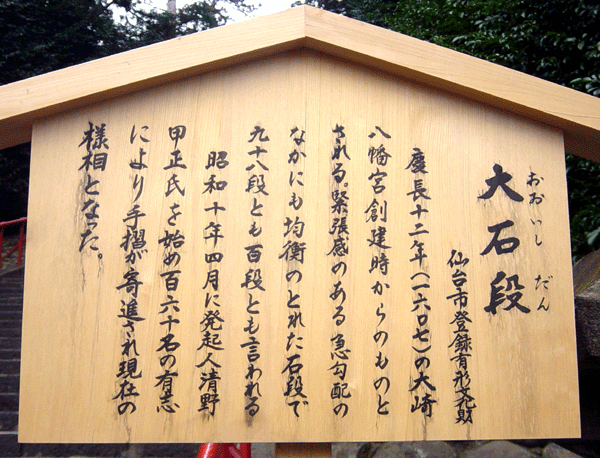 大石段
おおいし だん
仙台市登録有形文化財
慶長十二年(一六〇七)の大崎
八幡宮創建時からのものと
される。緊張感のある急勾配の
なかにも均衡のとれた石段で
九十八段とも百段とも言われる
昭和十年四月に発起人清野
甲正氏を始め百六十名の有志
により手摺が寄進され現在の
様相となった。